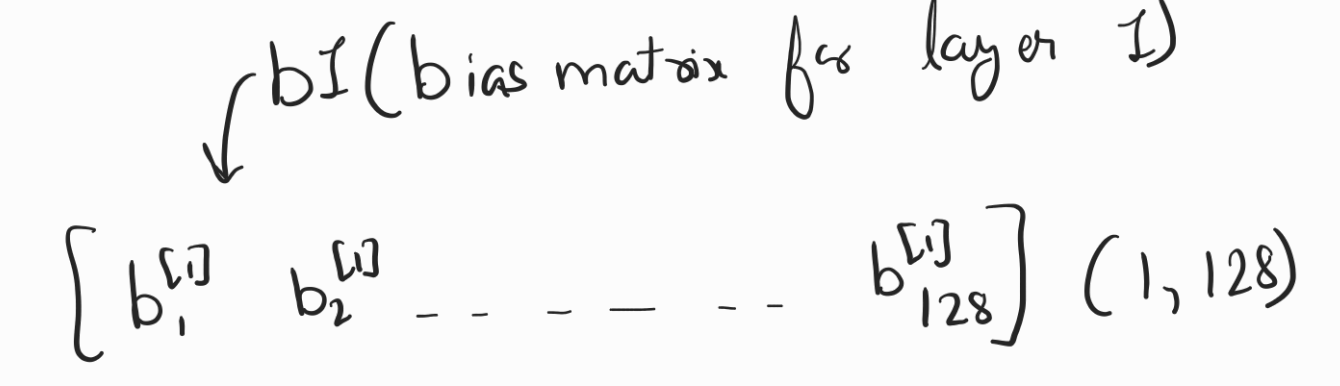 b1(bias matrix for layer 1)
[ b₁^[1] b₂^[1] - - - — - - b₁₂₈^[1] ] (1, 128)